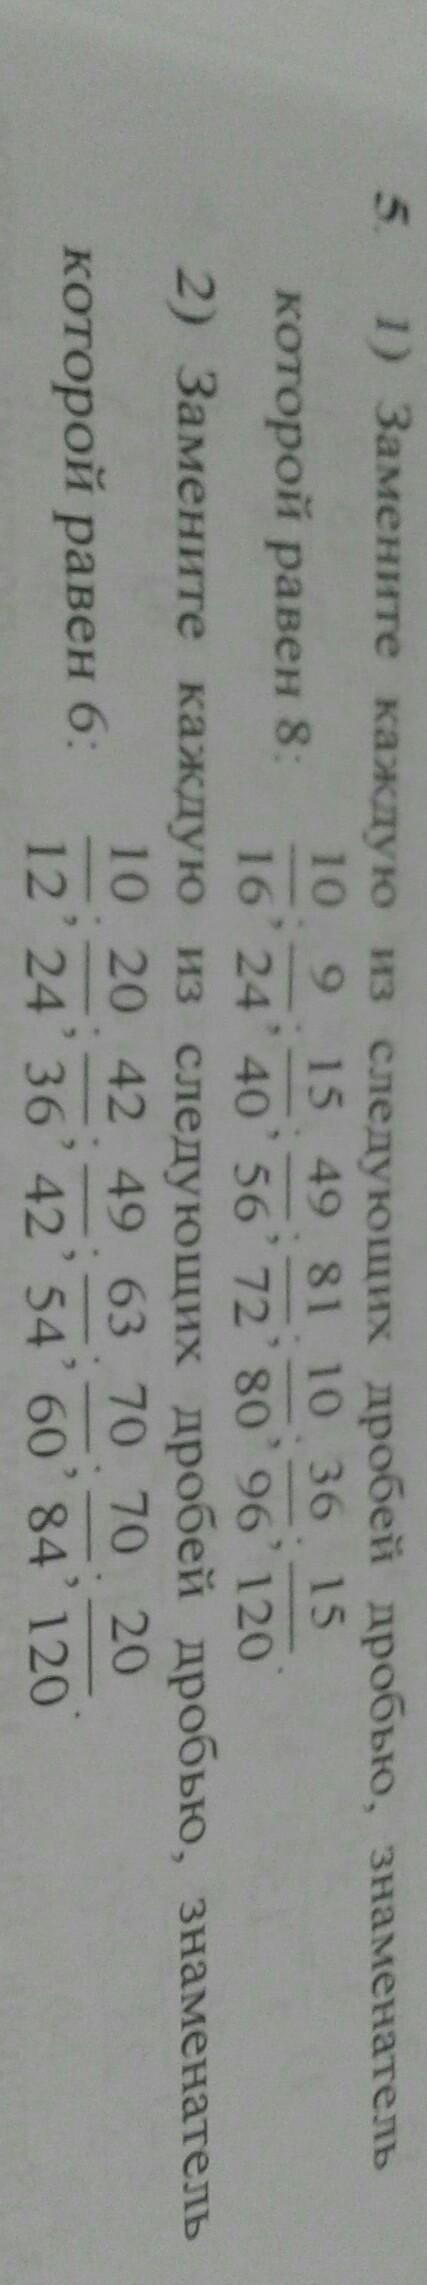 5. 1) Замените каждую из следующих дробей дробью, знаменатель
которой равен 8: 10/16; 9/24; 15/40; 49/56; 81/72; 10/80; 36/96; 15/120.
2) Замените каждую из следующих дробей дробью, знаменатель
которой равен 6: 10/12; 20/24; 42/36; 49/42; 63/54; 70/60; 70/84; 20/120.